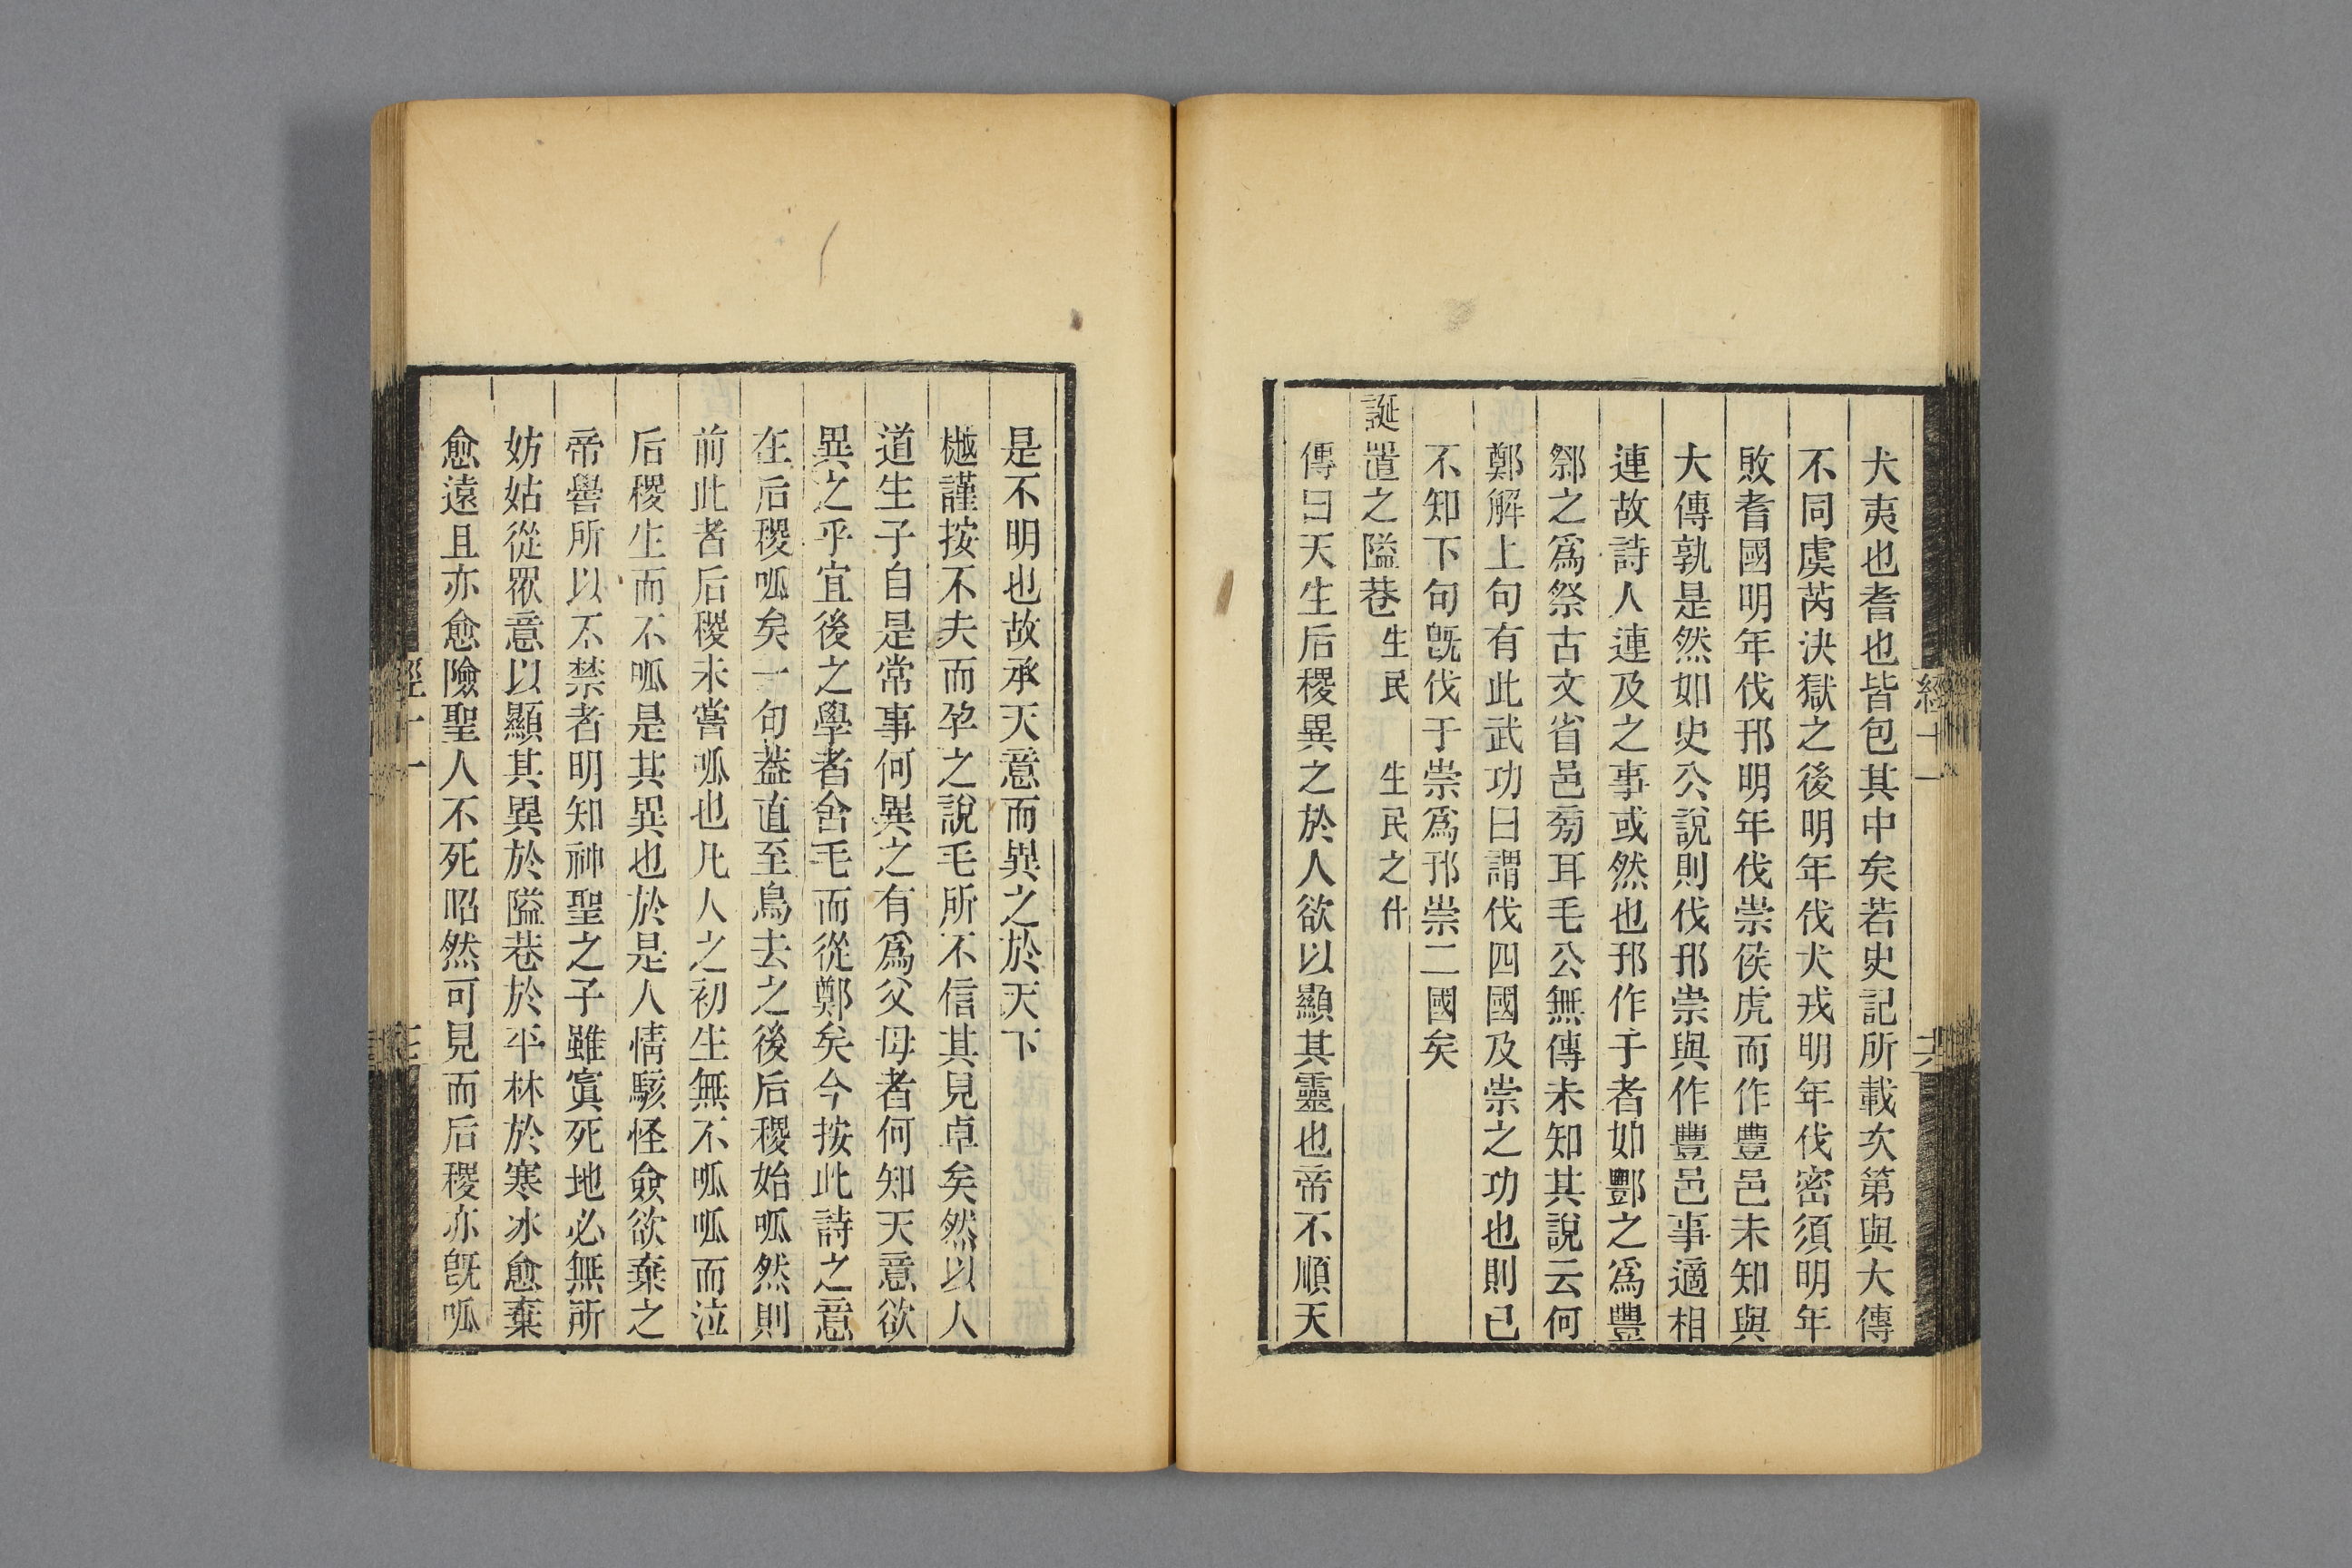 犬夷也耆也皆包其中矣若史記所載次第與大傳
不同虞芮決獄之後明年伐犬戎明年伐密須明年
敗耆國明年伐邘明年伐崇侯虎而作豐邑未知與
大傳孰是然如史公說則伐邘崇與作豐邑事適相
連故詩人連及之事或然也邘作于者如酆之爲豐
鄒之爲祭古文省邑旁耳毛公無傳未知其說云何
鄭解上句有此武功曰謂伐四國及崇之功也則已
不知下句旣伐于崇爲邘崇二國矣
誕寘之隘巷 生民 生民之什
傳曰天生后稷異之於人欲以顯其靈也帝不順天
經十一
是不明也故承天意而異之於天下
樾謹按不夫而孕之說毛所不信其見卓矣然以人
道生子自是常事何異之有爲父母者何知天意欲
異之乎宜後之學者舍毛而從鄭矣今按此詩之意
在后稷呱矣一句葢直至鳥去之後后稷始呱然則
前此者后稷未嘗呱也凡人之初生無不呱呱而泣
后稷生而不呱是其異也於是人情駭怪僉欲棄之
帝嚳所以不禁者明知神聖之子雖寘死地必無所
妨姑從眾意以顯其異於隘巷於平林於寒冰愈棄
愈遠且亦愈險聖人不死昭然可見而后稷亦旣呱
經十一